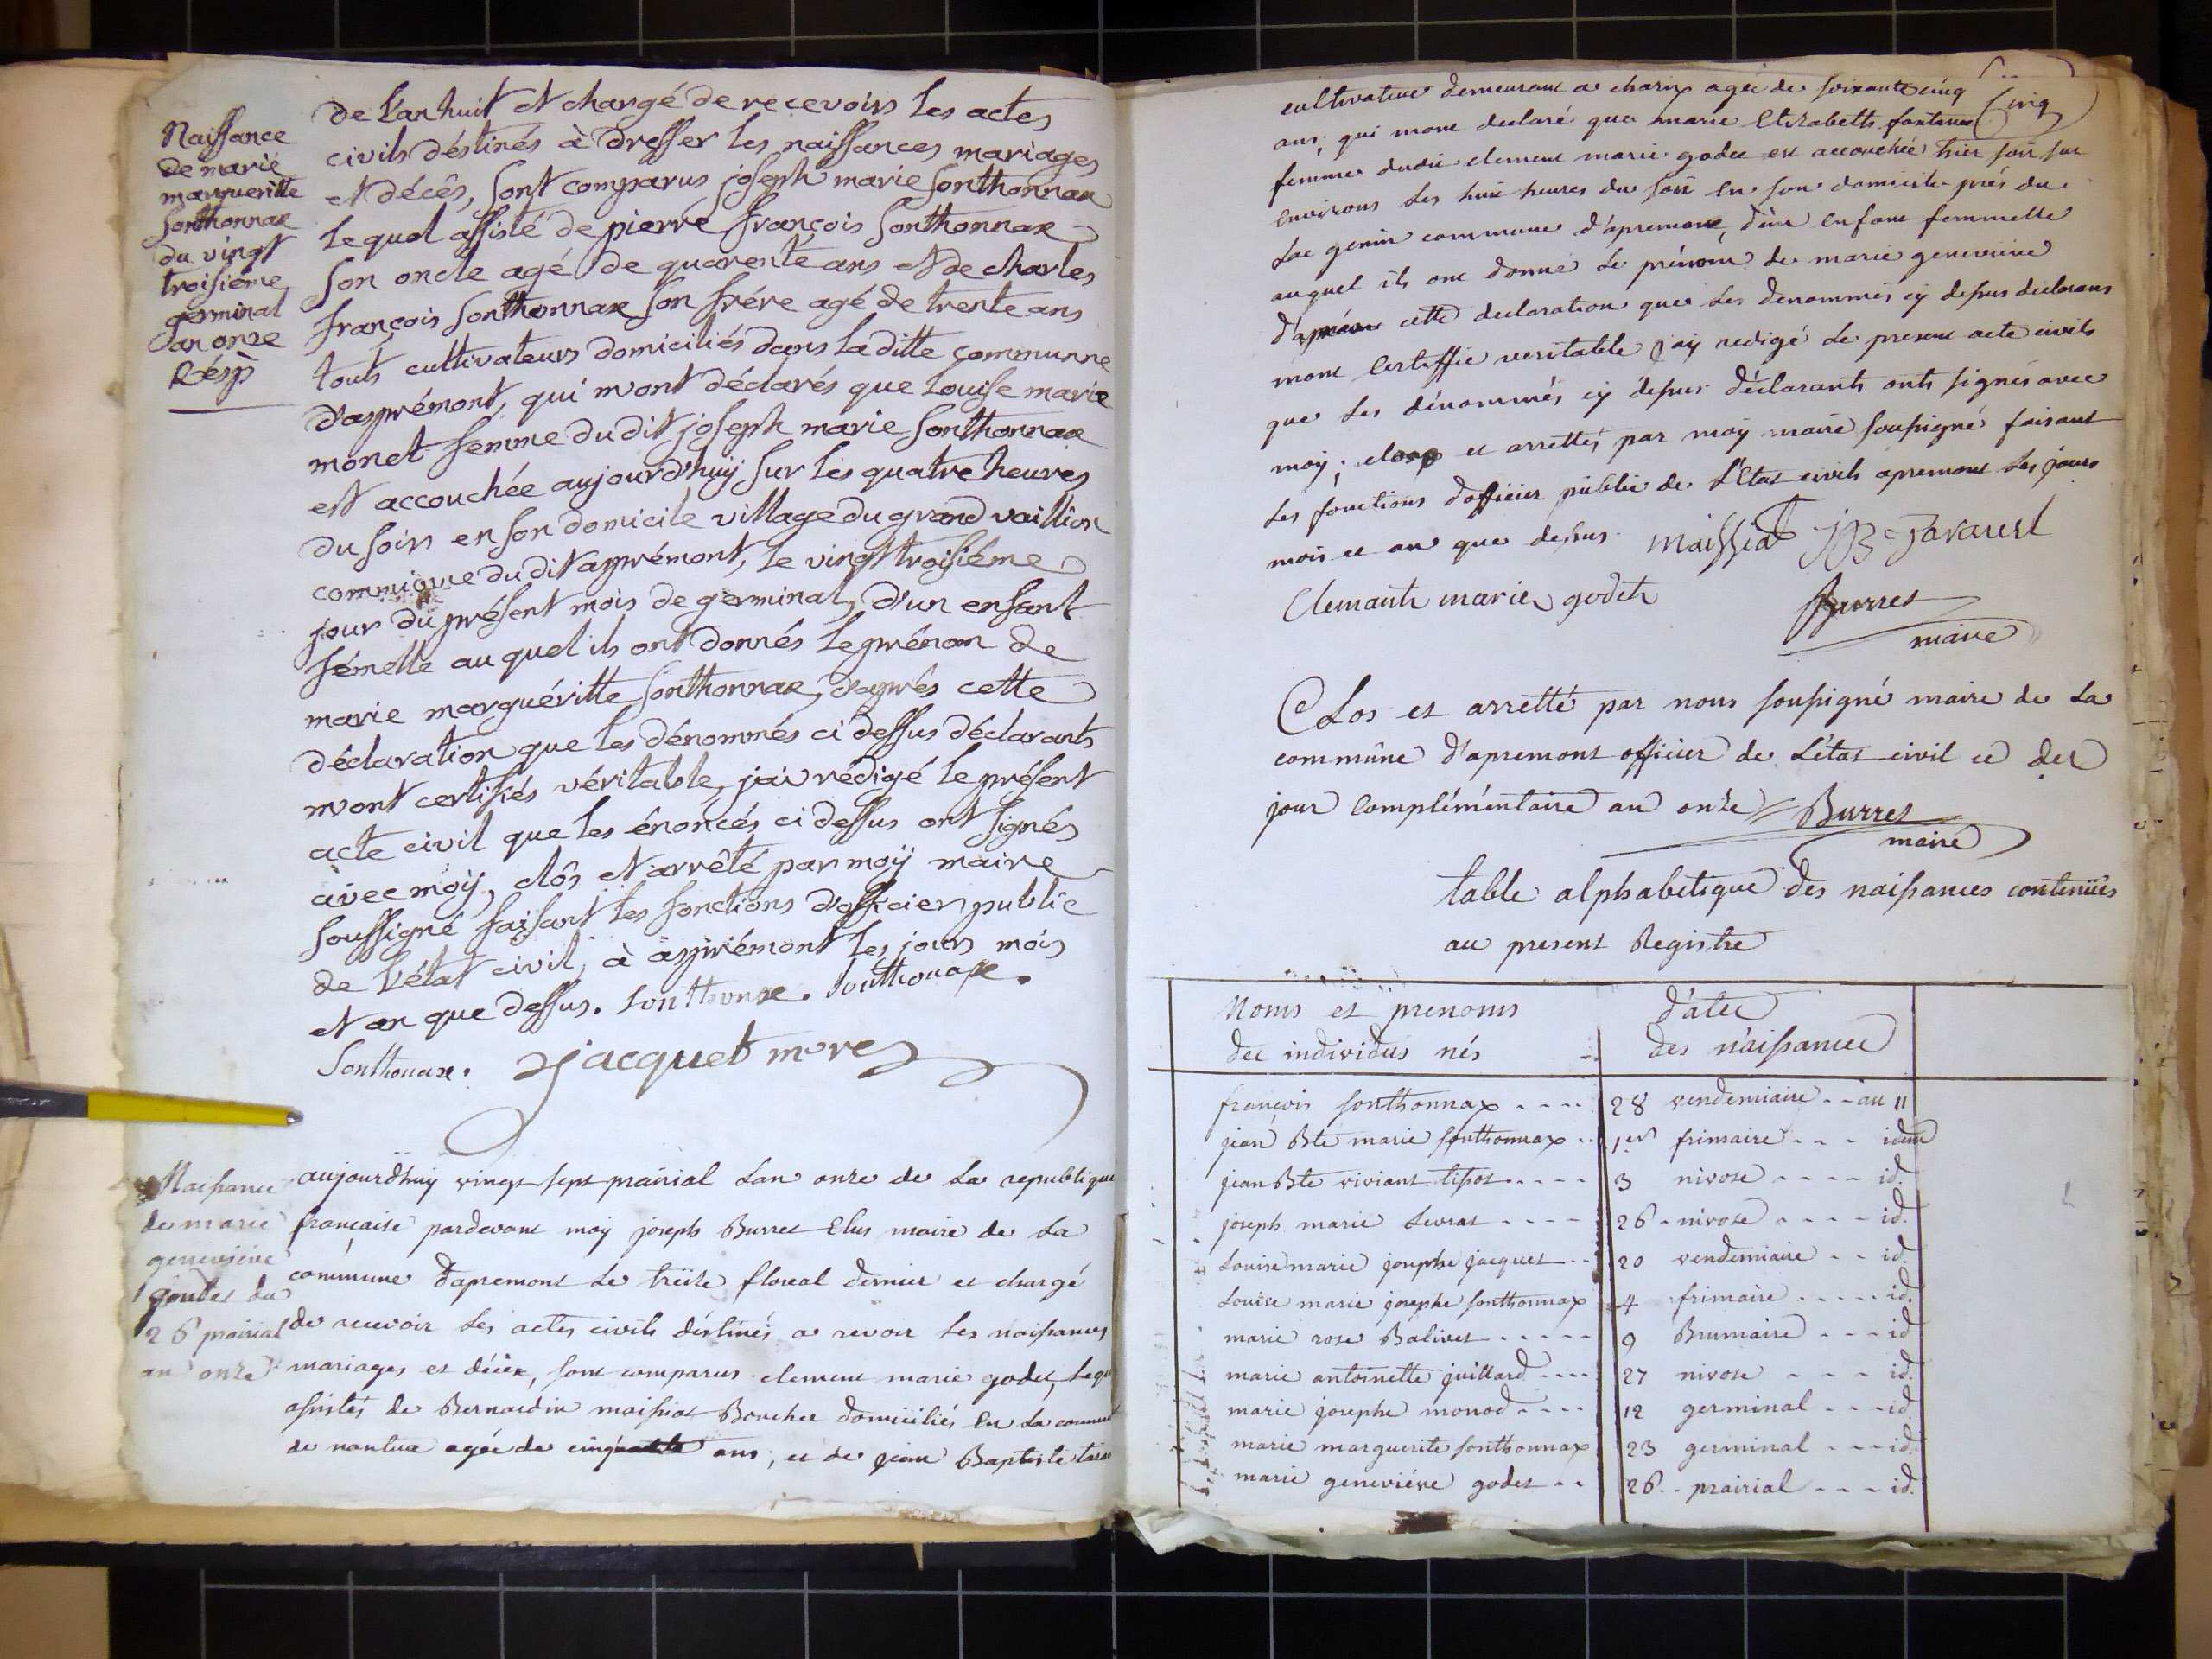 Naissance
de marie
margueritte
Sonthonnax
du vingt
troisiéme
germinal
an onze
de l'an huit et chargé de recevoirs les actes
civils déstinés à dresser les naissances mariages
et décês, sont comparus joseph marie Sonthonnax
lequel assisté de pierre françois Sonthonnax
son oncle agé de quarente ans et de charles
françois Sonthonnax son frére agé de trente ans
touts cultivateurs domiciliés dans la ditte communne
d'asprémont, qui m'ont déclarés que Louise marie
monet femme du dit joseph marie Sonthonnax
est accouchée aujourd'huij sur les quatre heures
du soirs en son domicile village du grand vaillion
commune du dit asprémont, le vingt troisiéme
jour du présent mois de germinal, d'un enfant
fémelle au quel ils ont donnés le prénom de
marie marguéritte Sonthonnax, d'aprês cette
déclaration que les dénommés ci dessus déclarants
m'ont certifiés véritable, j'ai rédigé le présent
acte civil que les énoncés ci dessus ont signés
avec moÿ, clôs et arrêté par moÿ maire
soussigné faisant les fonctions d'officier public
de l'état civil, à asprémont les jours mois
et an que dessus. Sonthonax. Sonthonaxe.
Sonthonax. jacquet mre
Naissance
de marie
genevieve
godet du
26 prairial
an onze
aujourdhuy vingt sept prairial lan onze de la republique
française pardevant moy joseph Burret Elus maire de la
commune d'apremont le treize floreal dernier et chargé
de recevoir les actes civils déstinés a revoir les naissances
mariages et décix, sont comparus clement marie godet, lequ
assistés de Bernardin maissiat Boucher domiciliés en la commune
de nantua agée de cinquante ans, et de jean Baptiste
cultivateur demeurant a charix agée de soixante cinq
cinq
ans, qui mont declaré que marie Elizabeth
femme dudit clement marie godet est accouchée hier soir sur
environs les huit heures du soir en son domicile prés du
Lac genin commune d'apremont, d'un enfant femmelle
auquel ils ont donné le prénom de marie genevieve
d'aprèes cette declaration que les denommés cy dessus déclarans
mont Certiffié veritable j'ay redigé le present acte civils
que les dénommés cy dessus déclarants onts signés avec
moy; clos et arrettés par moy maire soussigné faisant
les fonctions d'officier public de L'Etat civils apremont les jours
mois et an que dessus. maissiat
Clemant marie godet
Burret
maire
Clos et arretté par nous soussigné maire de la
commune d'apremont officier de L'état civil ce der
jour complémentaire an onze Burret
maire
table alphabetique des naissances contenües
au present Registre
Noms et prenoms
des individus nés
d'ates
des naissances
françois sonthonnax .... 28 vendemiaire .. an 11
jean Bte marie sonthonnax .. 1er frimaire ... idem
jean Bte viviant tissot ..... 3 nivose .... id.
joseph marie Levrat .... 26 . nivose .... id.
Louise marie josephe jacquet .. 20 vendemiaire .. id.
Louise marie josephe sonthonnax 4 frimaire ..... id.
marie rose Balivet ..... 9 Brumaire ... id
marie antoinette juillard .... 27 nivose ... id.
marie josephe monod .... 12 germinal ... id
marie marguerite sonthonnax 23 germinal ... id.
marie geneviéve godet .. 26 .. prairial ... id.